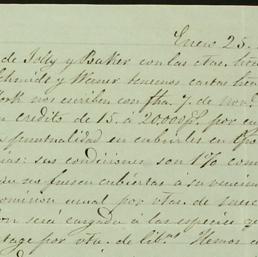 Enero 25.
de Jolly y Baker con las ctas.
Schmidt y Werner tenemos cartas
York nos escriben con fha. 7. de novb.
un credito de 15. á 20.000 ps. por cu
puntualidad en cubrirlos en
sus condiciones son 1% com
no fuesen cubiertas á su vencim
comision usual por vtas. de
será cargada á las especies
por vta. de Hemos